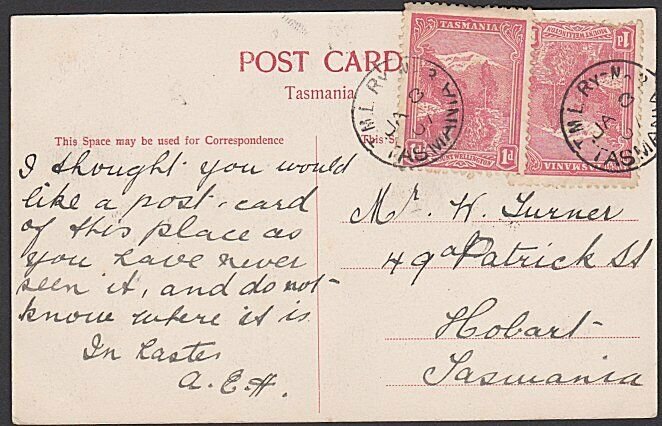 POST CARD
Tasmania
This Space may be used for Correspondence
This S
I thought you would
like a post-card
of this place as
you have never
seen it, and do not
know where it is
In haste
A.E.H.
Mr. W. Turner
49a Patrick St
Hobart
Tasmania
TASMANIA
MOUNT WELLINGTON
1d
TASMANIA
MOUNT WELLINGTON
1d
T.M.L. RY-No 2
JA 8
07
TASMANIA
T.M.L. RY-No 2
JA 8
TASMANIA